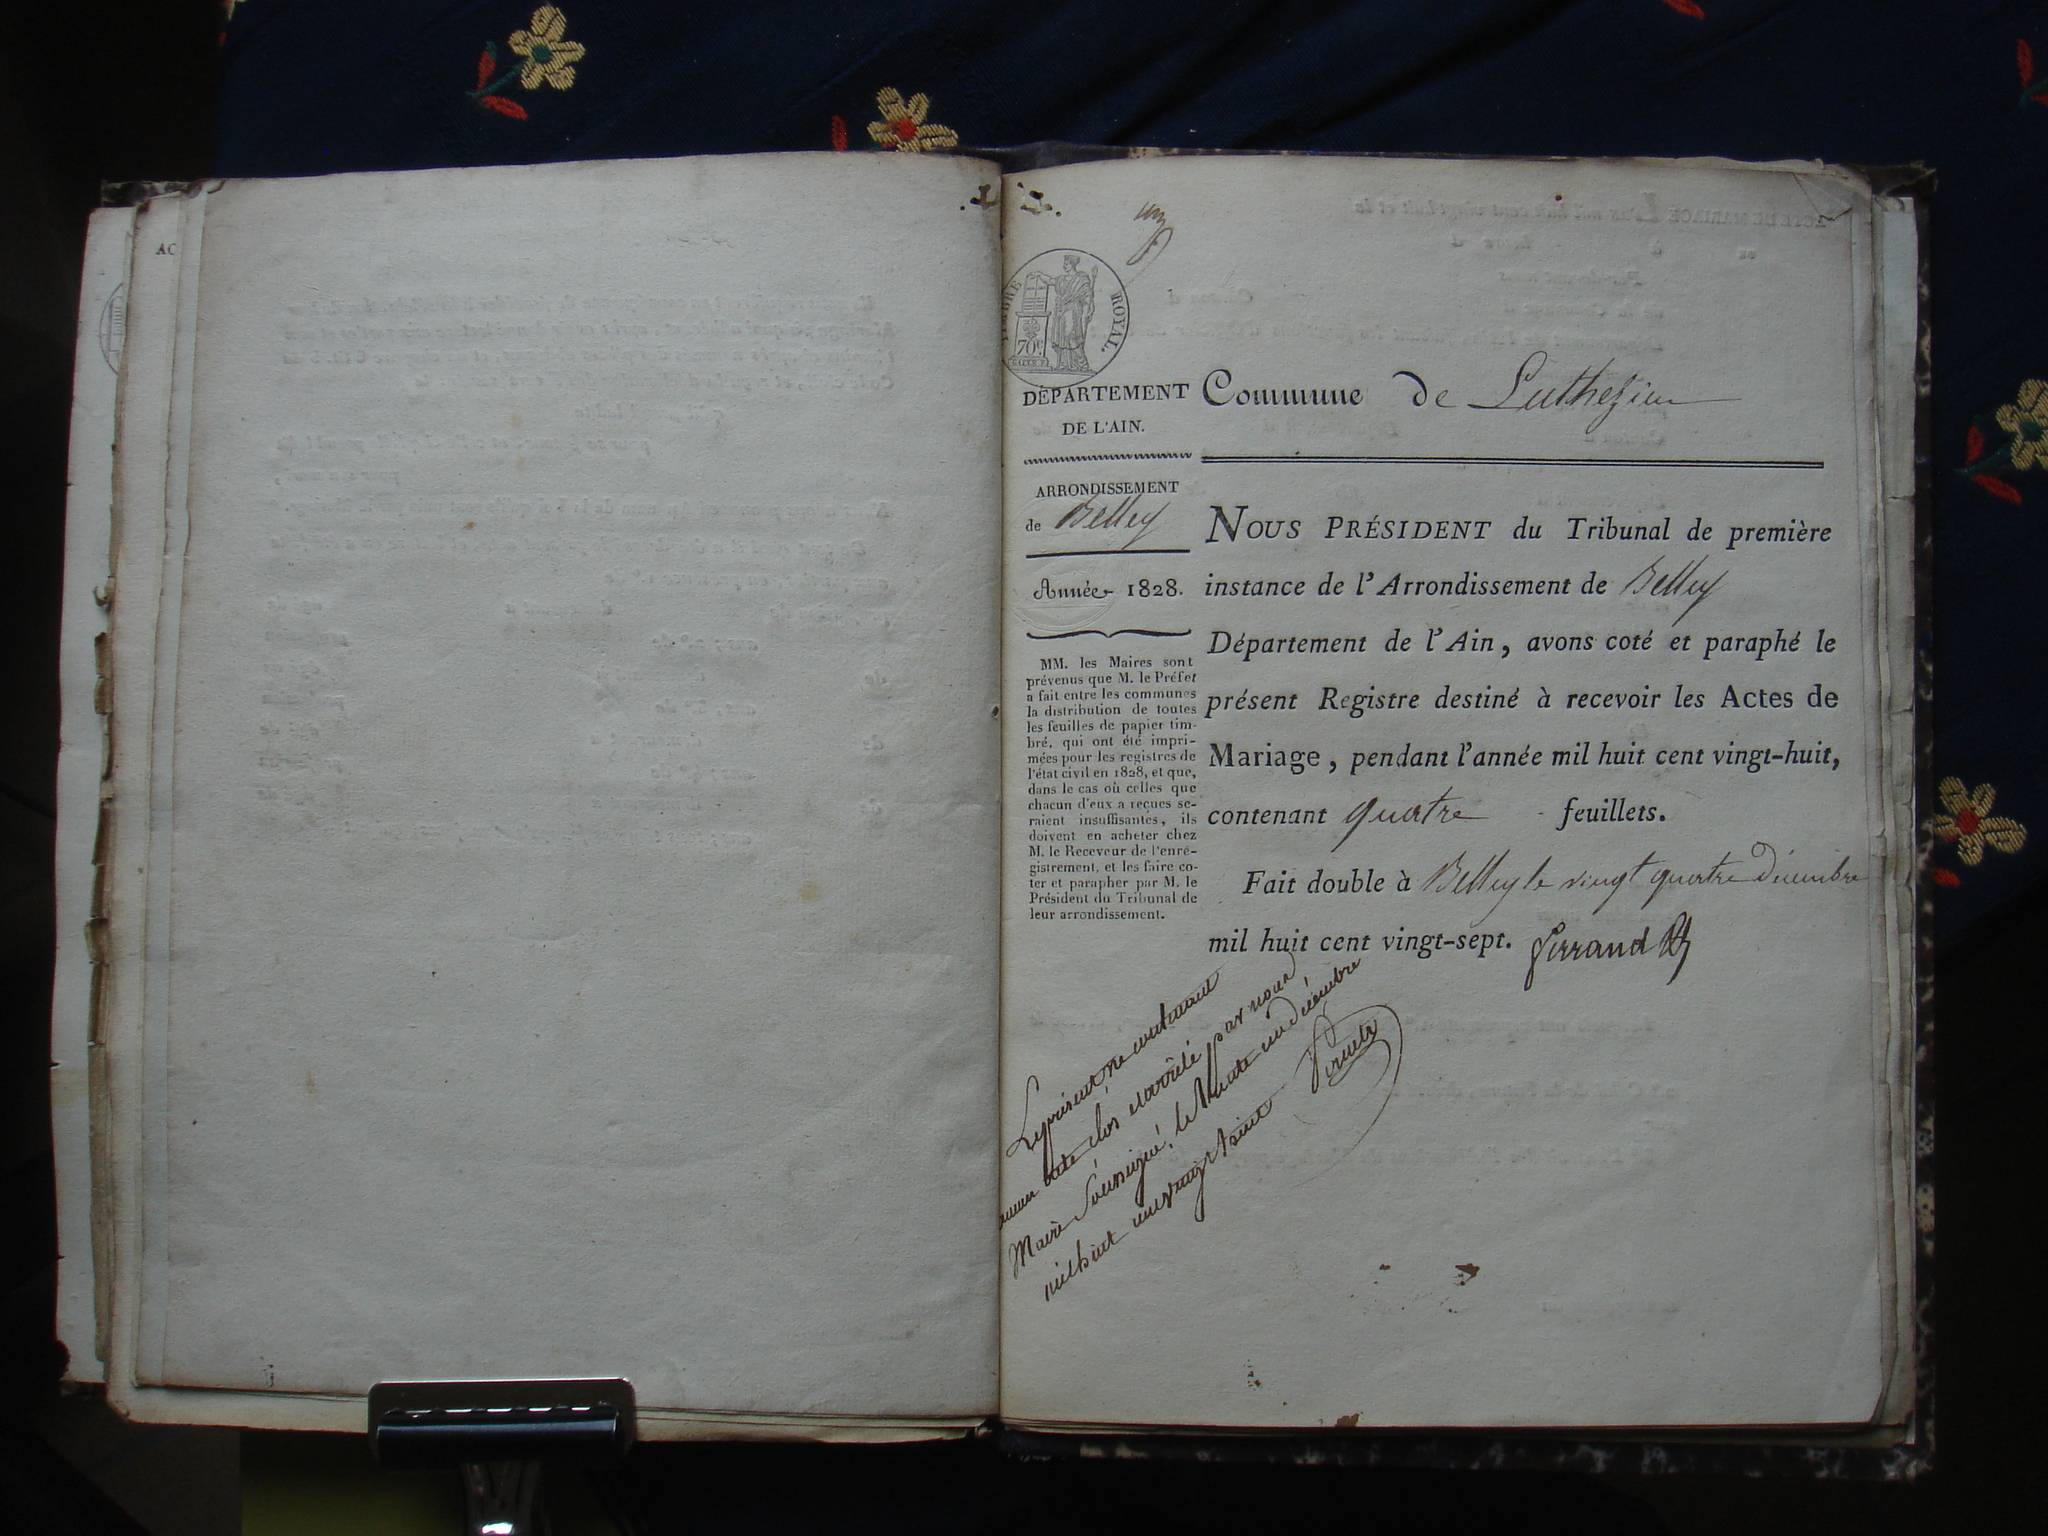 AC
un
TIMBRE ROYAL.
70c
DÉPARTEMENT
DE L'AIN.
Commune de Luthezieu
ARRONDISSEMENT
de Belley
Année 1828.
MM. les Maires sont
prévenus que M. le Préfet
a fait entre les communes
la distribution de toutes
les feuilles de papier tim-
bré, qui ont été impri-
mées pour les registres de
l'état civil en 1828, et que,
dans le cas où celles que
chacun d'eux a reçues se-
raient insuffisantes, ils
doivent en acheter chez
M. le Receveur de l'enré-
gistrement, et les faire co-
ter et parapher par M. le
Président du Tribunal de
leur arrondissement.
NOUS PRÉSIDENT du Tribunal de première
instance de l'Arrondissement de Belley
Département de l'Ain, avons coté et paraphé le
présent Registre destiné à recevoir les Actes de
Mariage, pendant l'année mil huit cent vingt-huit,
contenant quatre feuillets.
Fait double à Belley le vingt quatre décembre
mil huit cent vingt-sept. Ferrand
Le présent ne contenant
aucun acte clos et arrêté par nous
Maire Soussigné, le trente un décembre
mil huit cent vingt huit